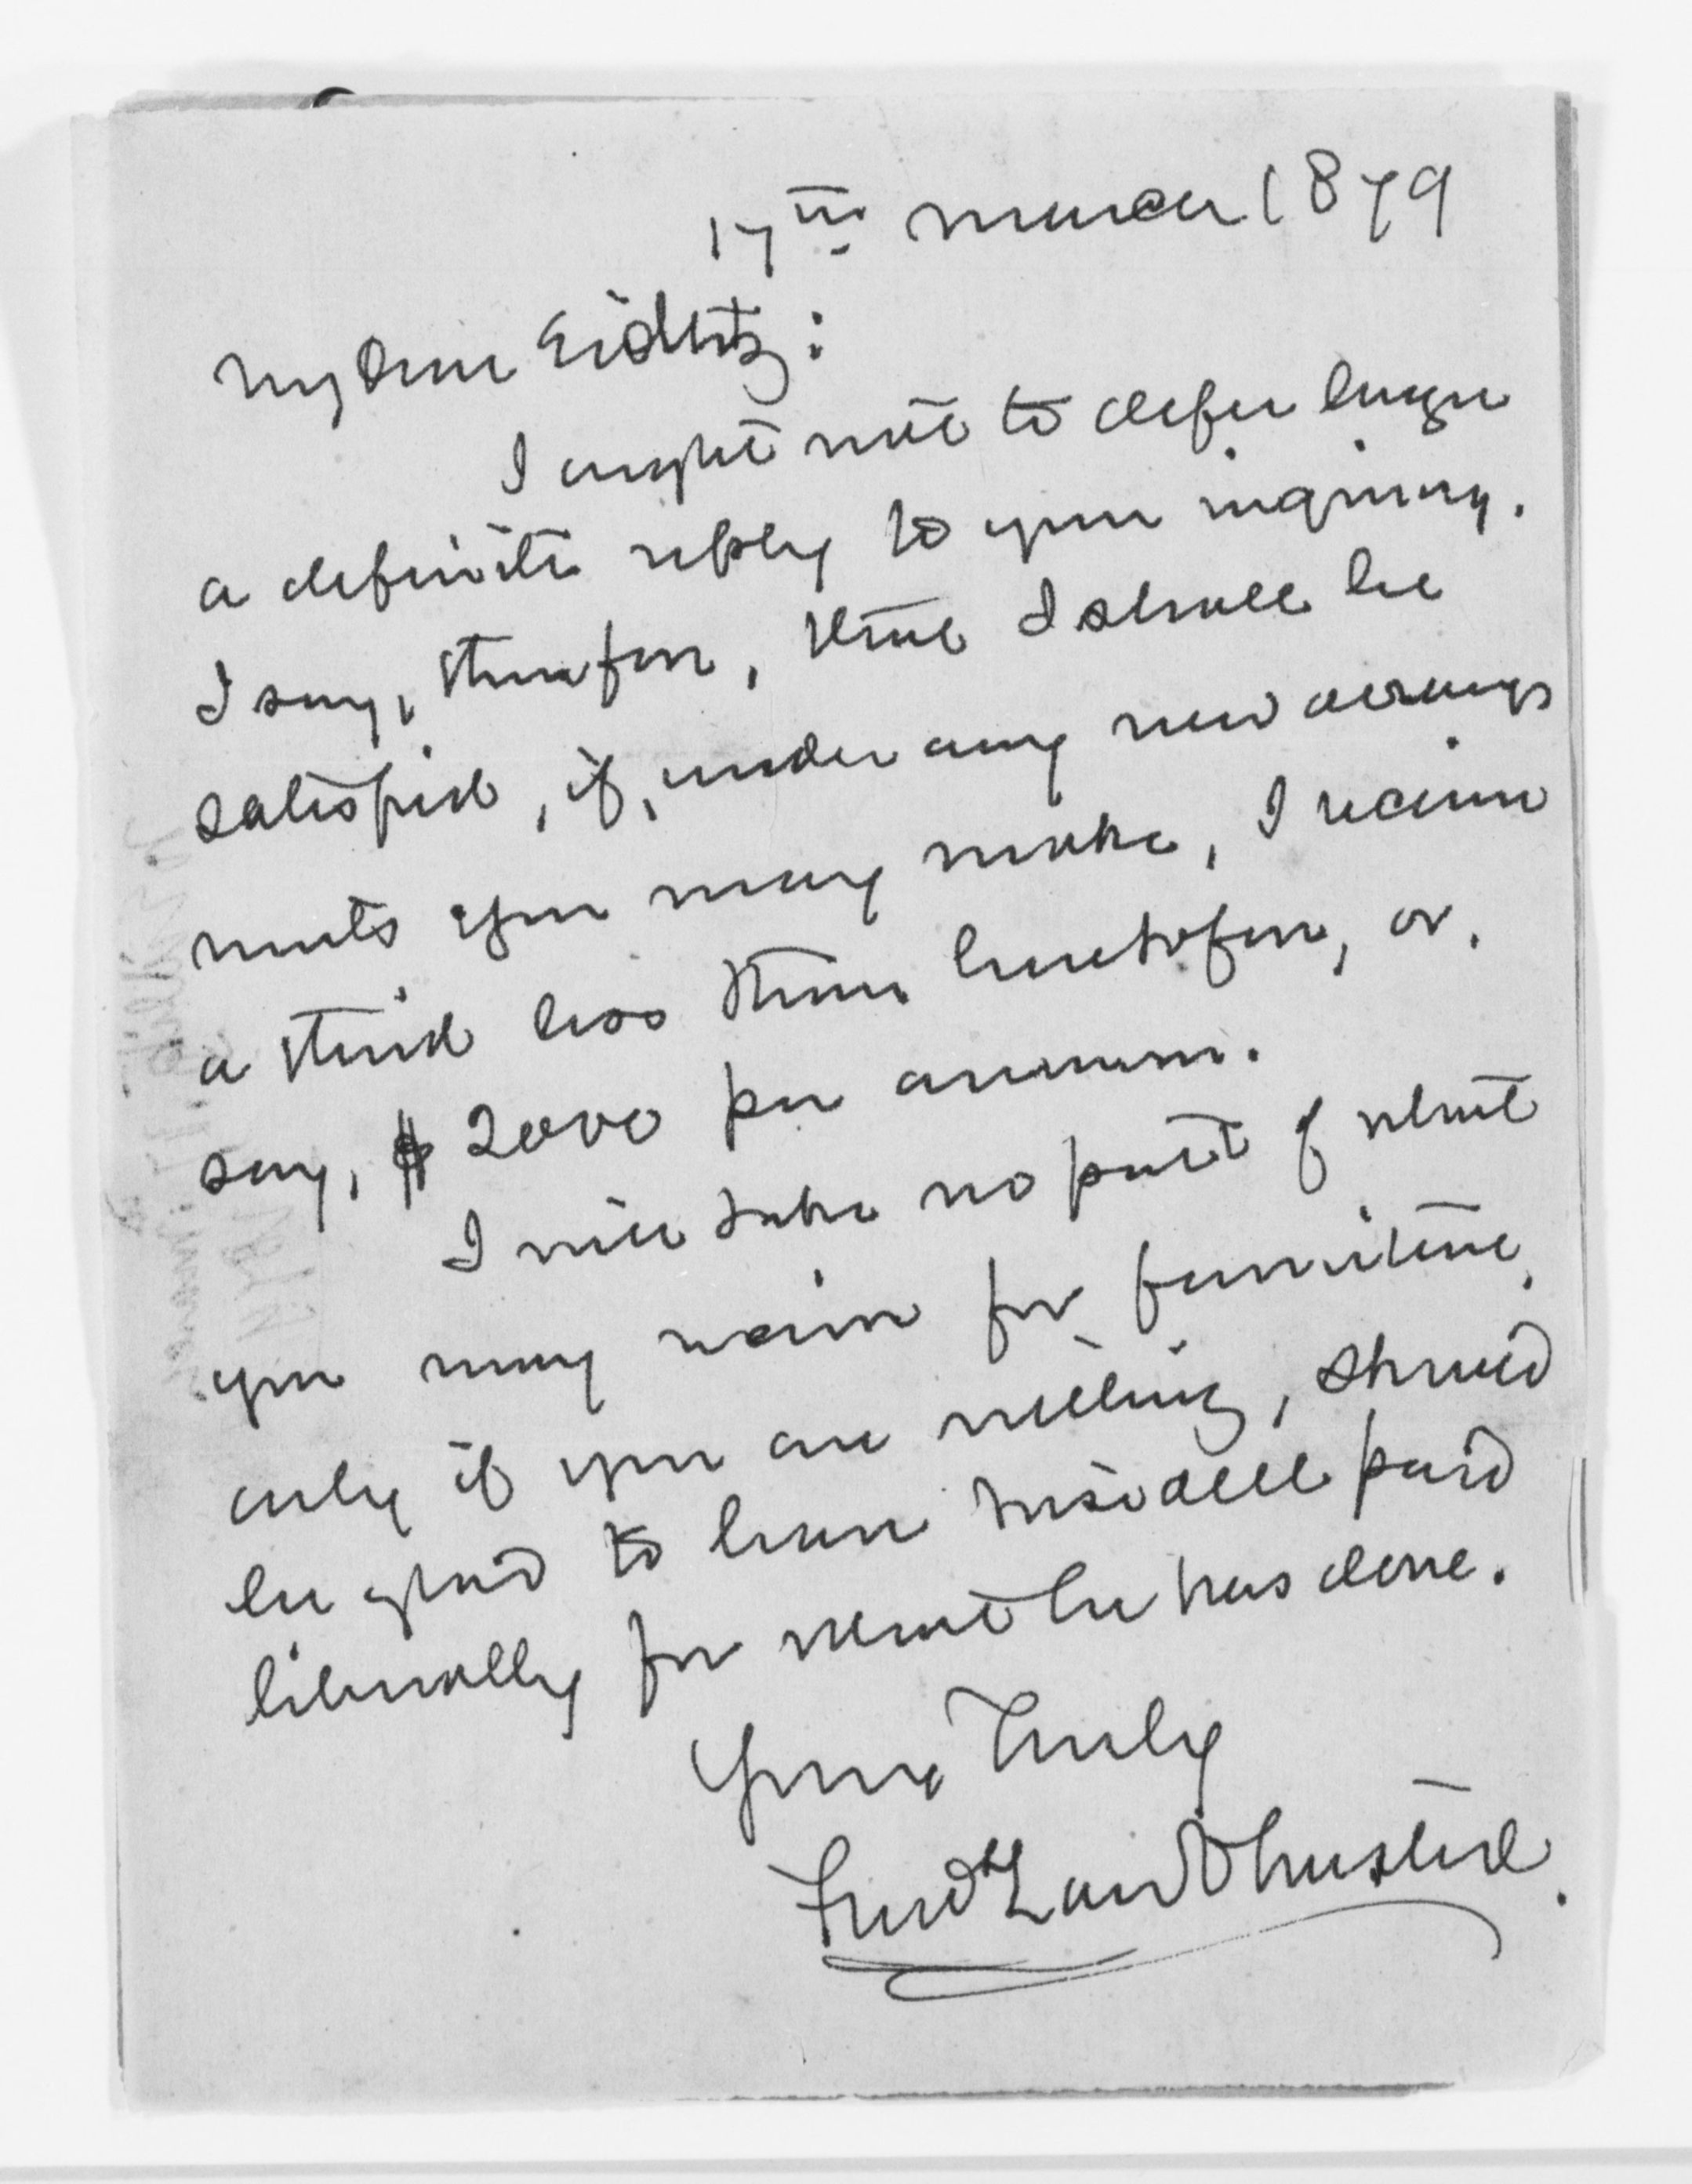 17th March 1879
My dear Eidlitz:
I ought not to defer longer
a definite reply to your inquiry.
I say, therefore, that I shall be
satisfied, if, under any new arrange
ments you may make, I receive
a third less than heretofore, or,
say, $2000 per annum.
I will take no part of what
you may receive for furniture,
only if you are willing, should
be glad to have Tisdell paid
liberally for what he has done.
Yours Truly
Fredk Law Olmsted.